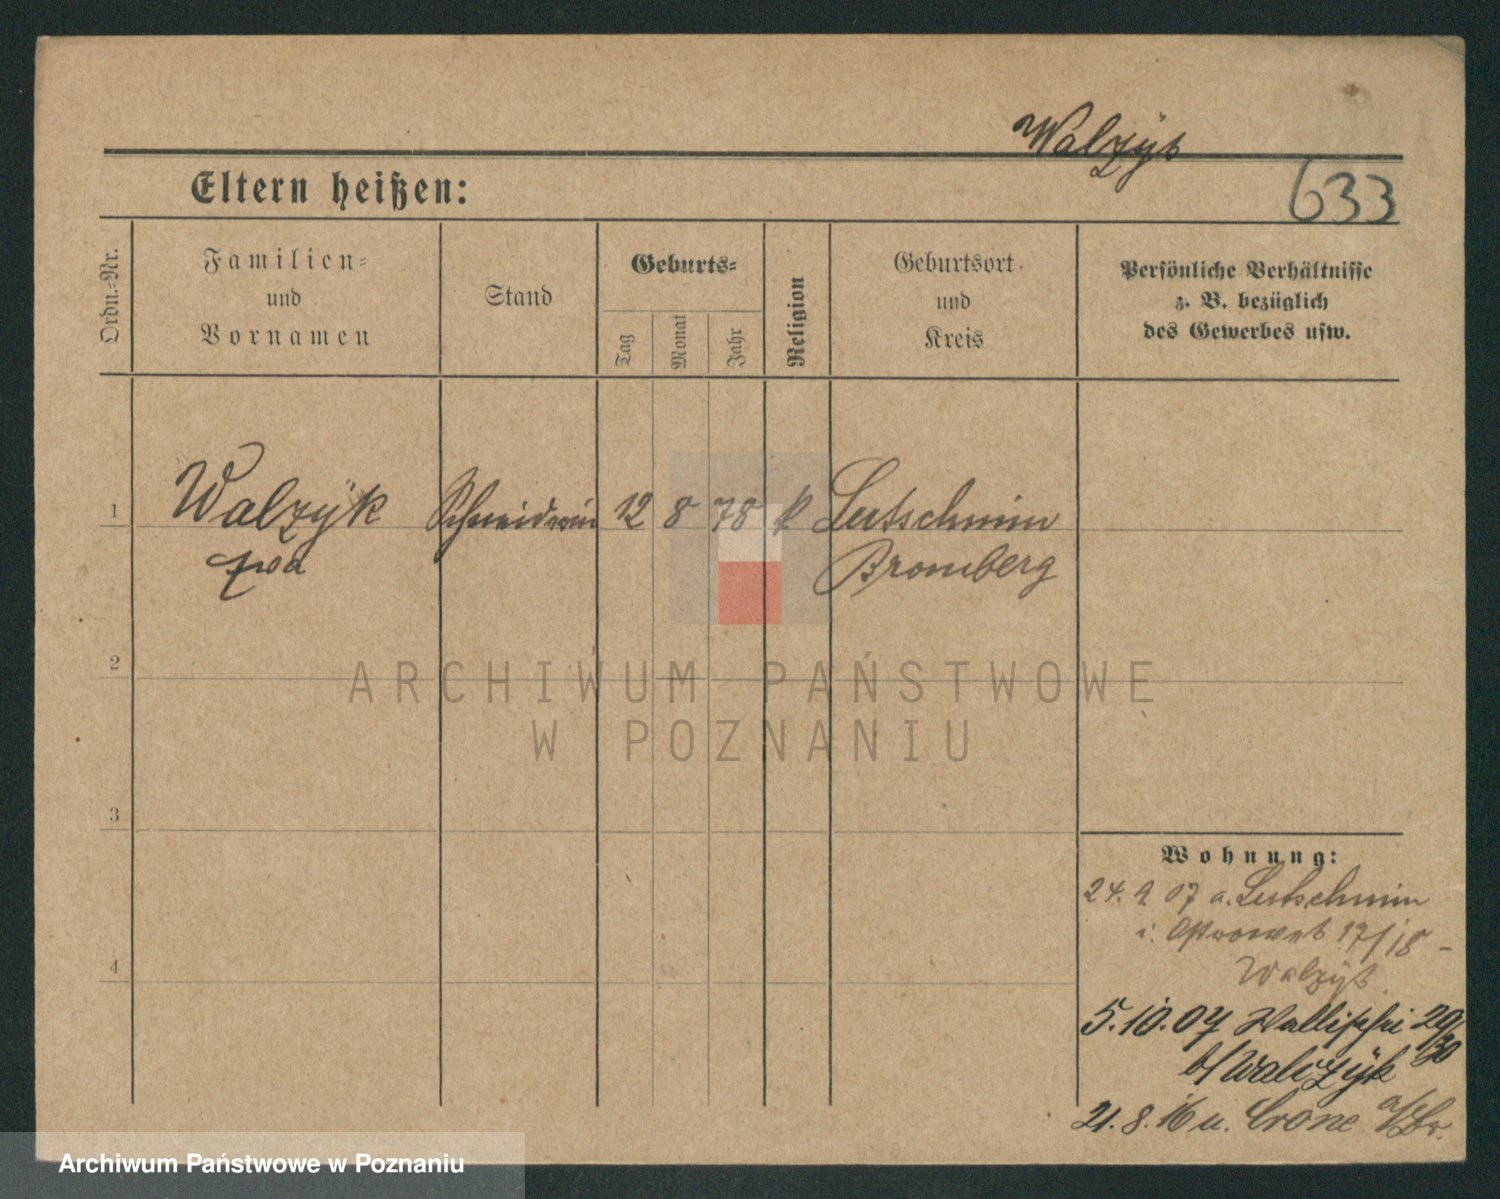 Walzÿk
Eltern heißen:
633
Ordn.-Nr.
Familien-
und
Vornamen
Stand
Geburts-
Tag
Monat
Jahr
Religion
Geburtsort
und
Kreis
Persönliche Verhältnisse
z. B. bezüglich
des Gewerbes usw.
1
Walzÿk Schneiderin 12 8 78 k Lutschmin
Eva Bromberg
2
ARCHIWUM PAŃSTWOWE
W POZNANIU
3
Wohnung:
24. 9 07 a. Lutschmin
i. Ostrowek 17/18 -
Walzÿk
5.10.07 Wallischei 29/30
b/ Walczÿk
21.8.16 u. Crone a/Br.
4
Archiwum Państwowe w Poznaniu